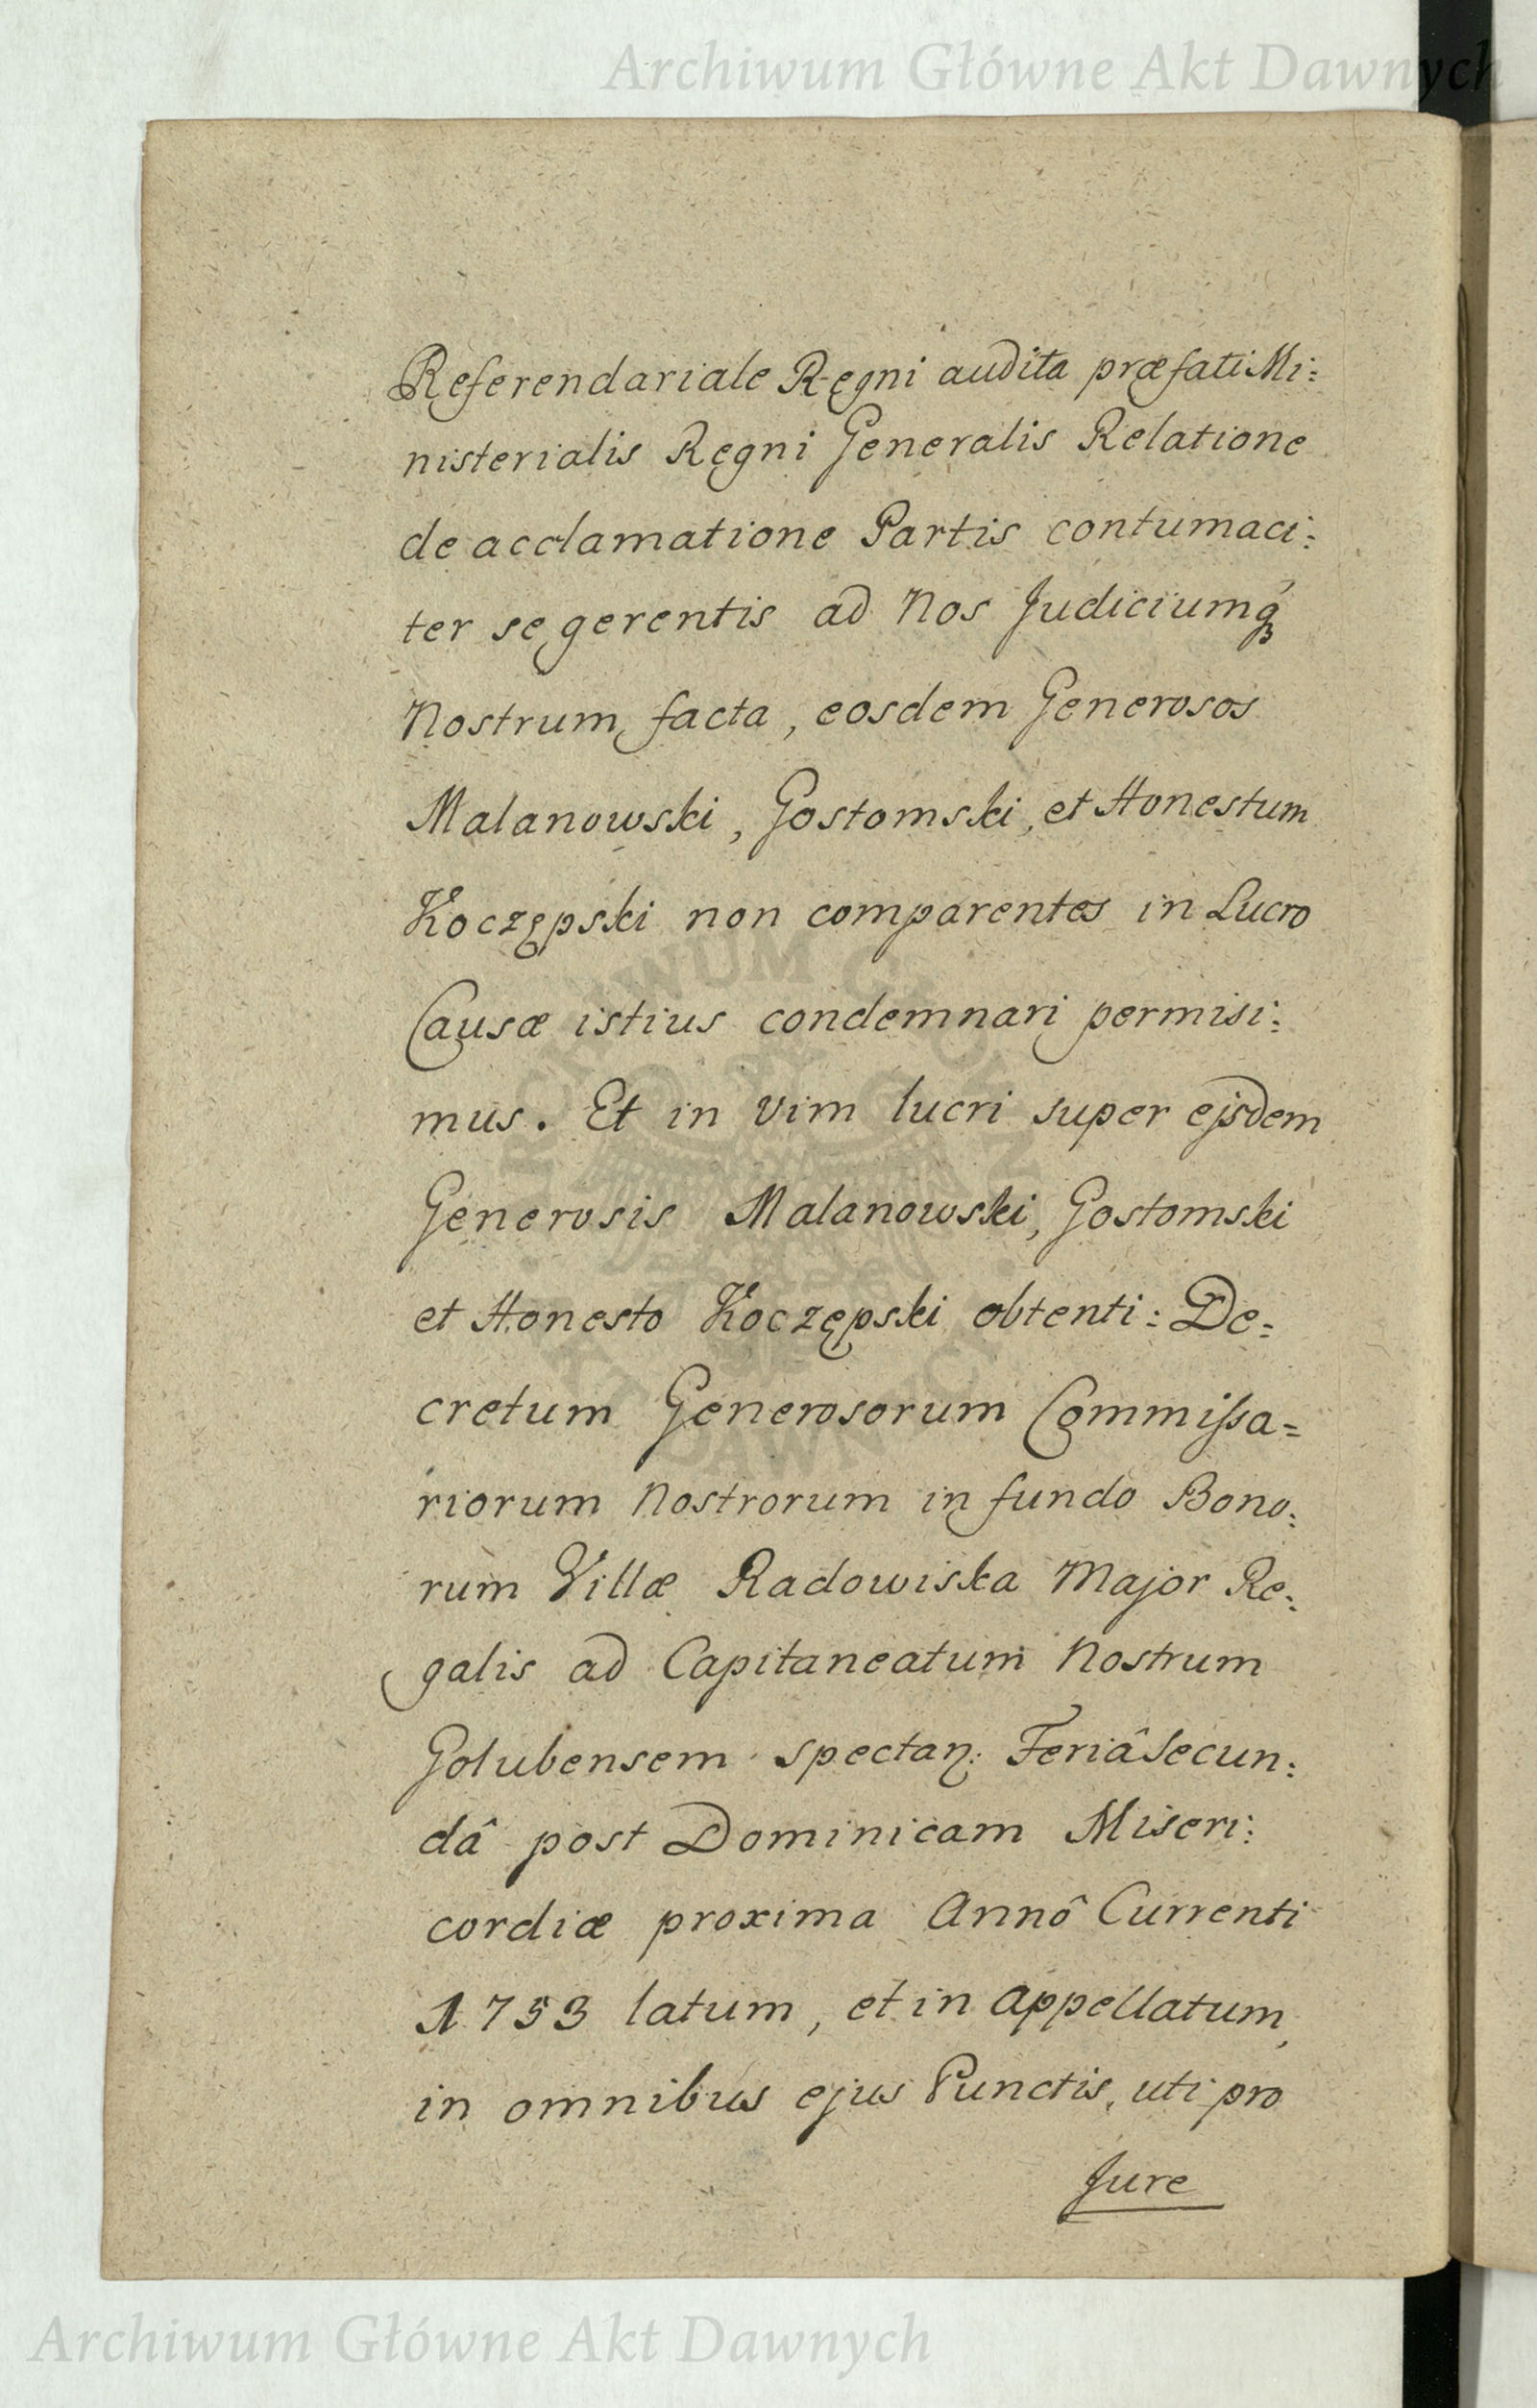 Archiwum Główne Akt Dawnych
Referendariale Regni audita præfati Mi:
nisterialis Regni Generalis Relatione
de acclamatione Partis contumaci:
ter se gerentis ad Nos Judiciumq́ꝫ
Nostrum facta, eosdem Generosos
Malanowski, Gostomski, et Honestum
Koczępski non comparentes in Lucro
Causæ istius condemnari permisi:
mus. Et in vim lucri super ejsdem
Generosis Malanowski, Gostomski
et Honesto Koczępski obtenti: De=
cretum Generosorum Commissa=
riorum Nostrorum in fundo Bono:
rum Villæ Radowiska Major Re:
galis ad Capitaneatum Nostrum
Golubensem spectan: Feriâ Secun:
dâ post Dominicam Miseri:
cordiæ proxima Annô Currenti
1753 latum, et in appellatum,
in omnibus ejus Punctis, uti pro
Jure
Archiwum Główne Akt Dawnych